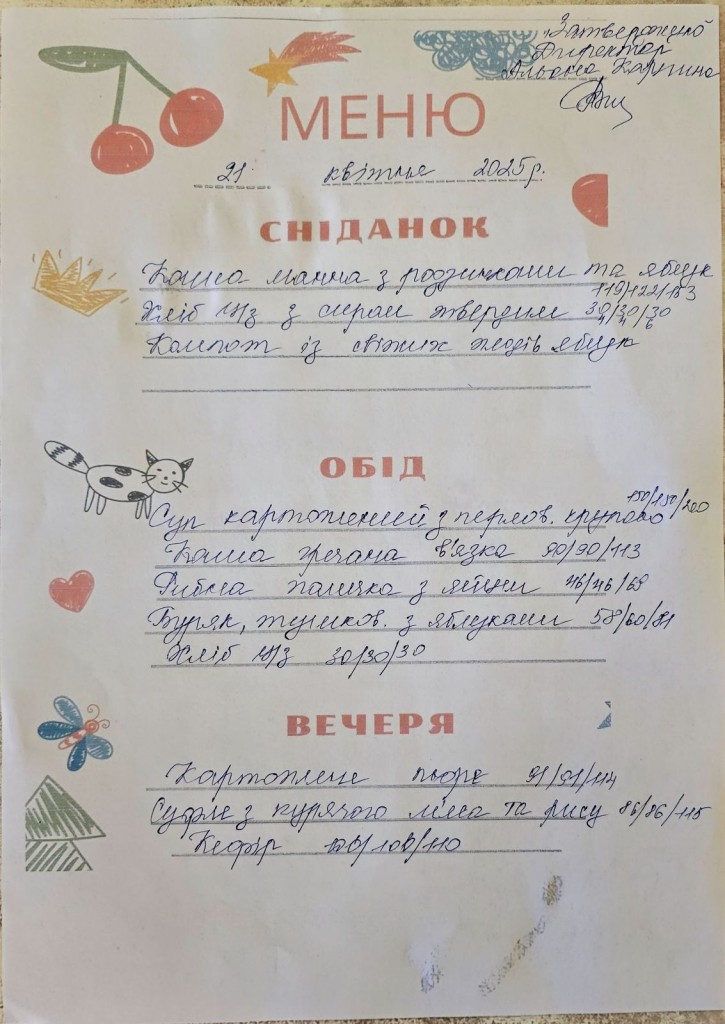 Затверджено
Директор
Альона Карпина
МЕНЮ
21 квітня 2025р.
СНІДАНОК
Каша манна з родзинками та яблук
119/122/183
Хліб ц/з з сиром твердим 30/30/30
4/4/6
Компот із свіжих плодів яблук
ОБІД
150/150/200
Суп картопляний з перлов. крупою
Каша гречана в'язка 90/90/113
Рибна паличка з яйцем 46/46/69
Буряк, тушков. з яблуками 58/60/81
Хліб ц/з 30/30/30
ВЕЧЕРЯ
Картопляне пюре 91/91/114
Суфле з курячого м'яса та рису 86/86/115
Кефір 100/100/110